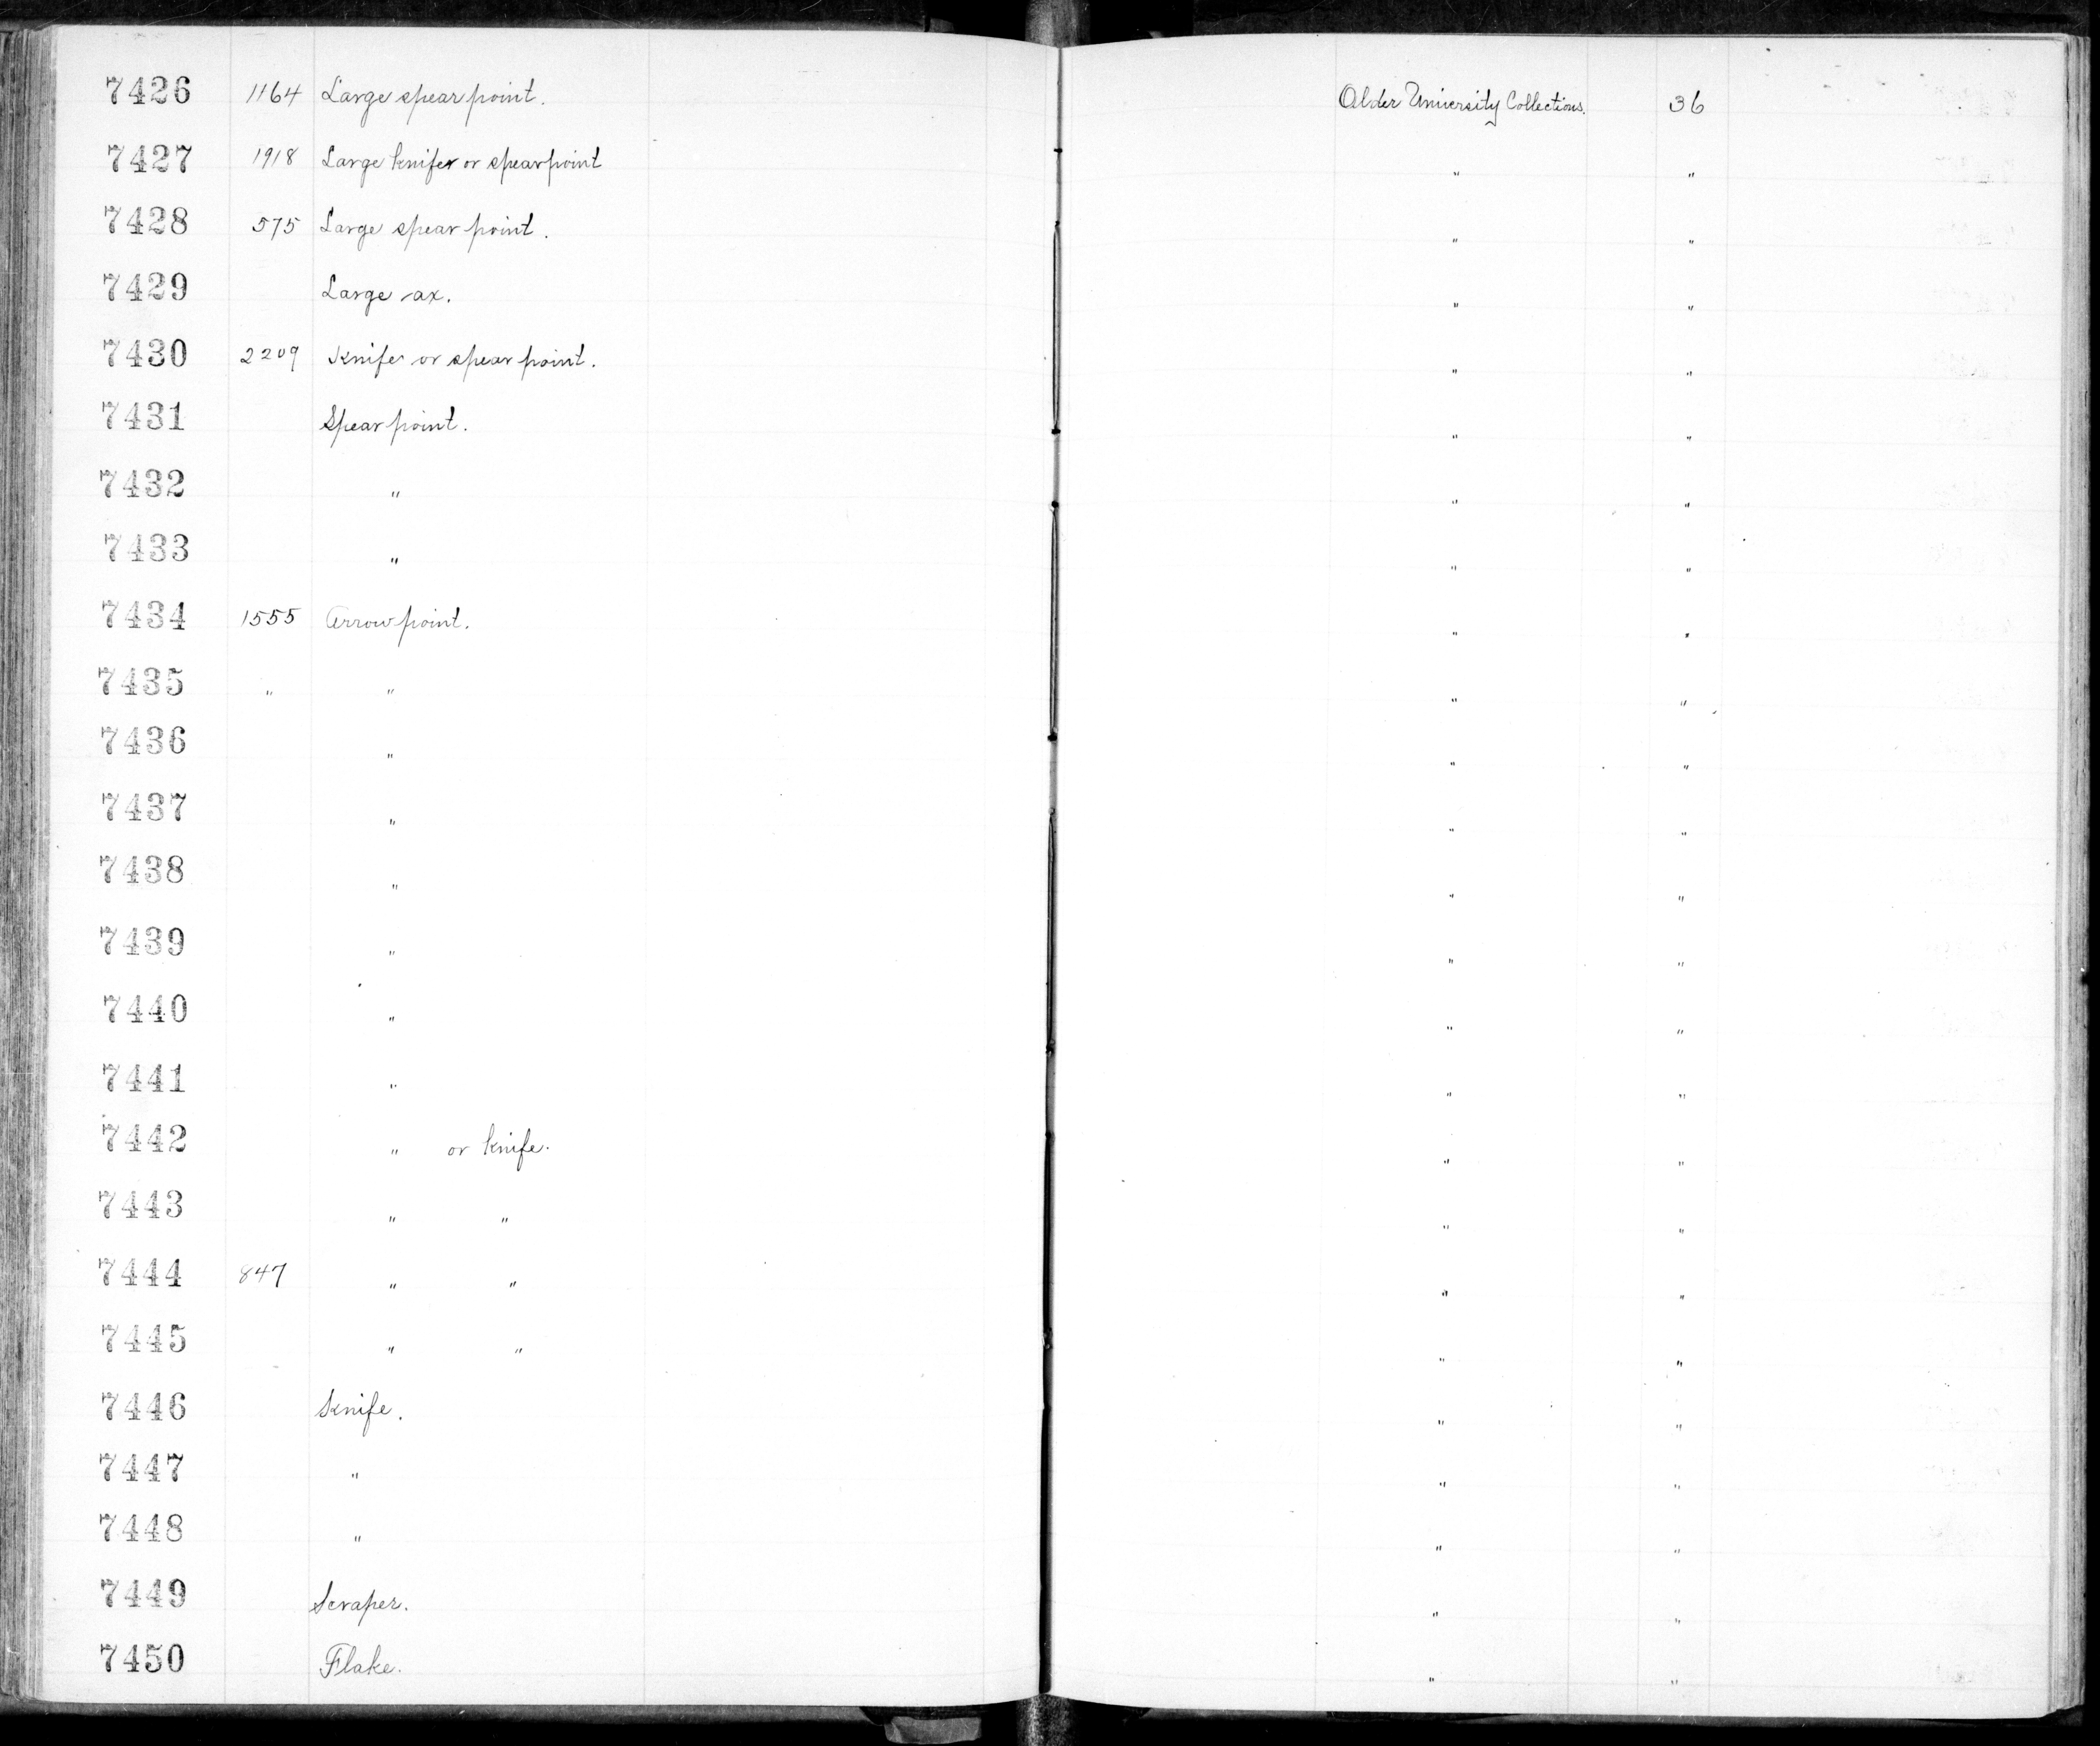 7426 1164 Large spear point. Older University Collections. 36
7427 1918 Large knife or spear point " "
7428 575 Large spear point. " "
7429 Large ax. " "
7430 2209 Knife or spear point. " "
7431 Spear point. " "
7432 " " "
7433 " " "
7434 1555 Arrow point. " "
7435 " " " "
7436 " " "
7437 " " "
7438 " " "
7439 " " "
7440 " " "
7441 " " "
7442 " or knife. " "
7443 " " " "
7444 847 " " " "
7445 " " " "
7446 Knife. " "
7447 " " "
7448 " " "
7449 Scraper. " "
7450 Flake. " "